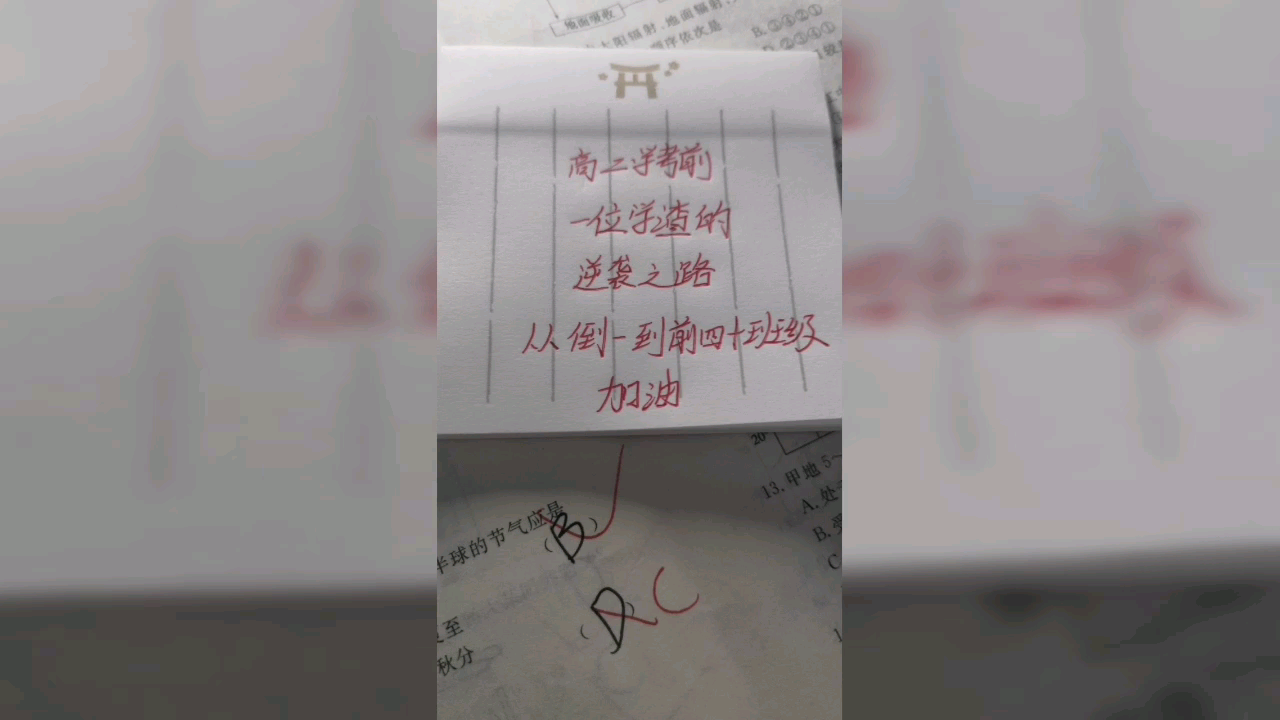 地面吸收
太阳辐射、地面辐射、
顺序依次是
B. ③④②①
D. ②③④①
高二学考前
一位学渣的
逆袭之路
从倒一到前四十班级
加油
20
13. 甲地 5～
A. 处
B. 受
C
半球的节气应是
(B)
(D) C
至
秋分